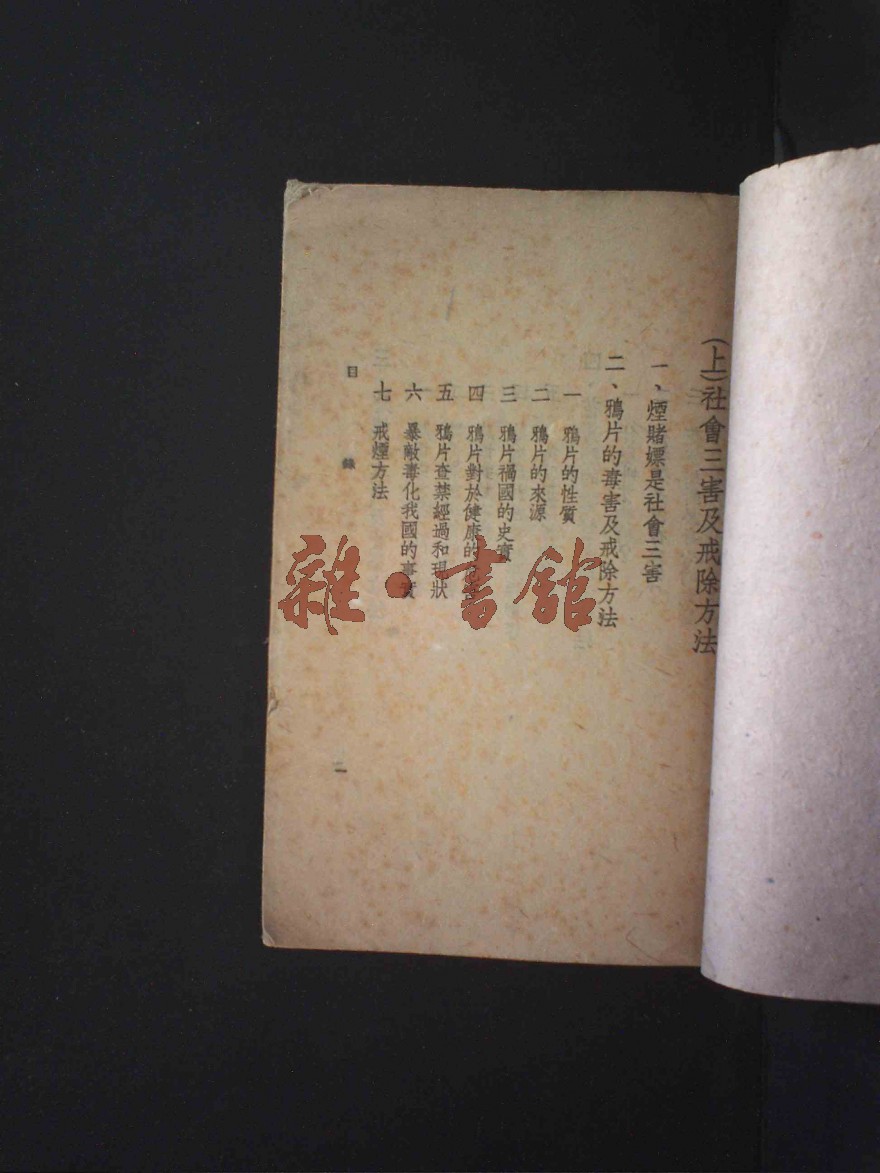 (上)社會三害及戒除方法
一、煙賭嫖是社會三害
二、鴉片的毒害及戒除方法
一 鴉片的性質
二 鴉片的來源
三 鴉片禍國的史實
四 鴉片對於健康的
五 鴉片查禁經過和現狀
六 暴敵毒化我國的事實
七 戒煙方法
目 錄
二
雜·書館